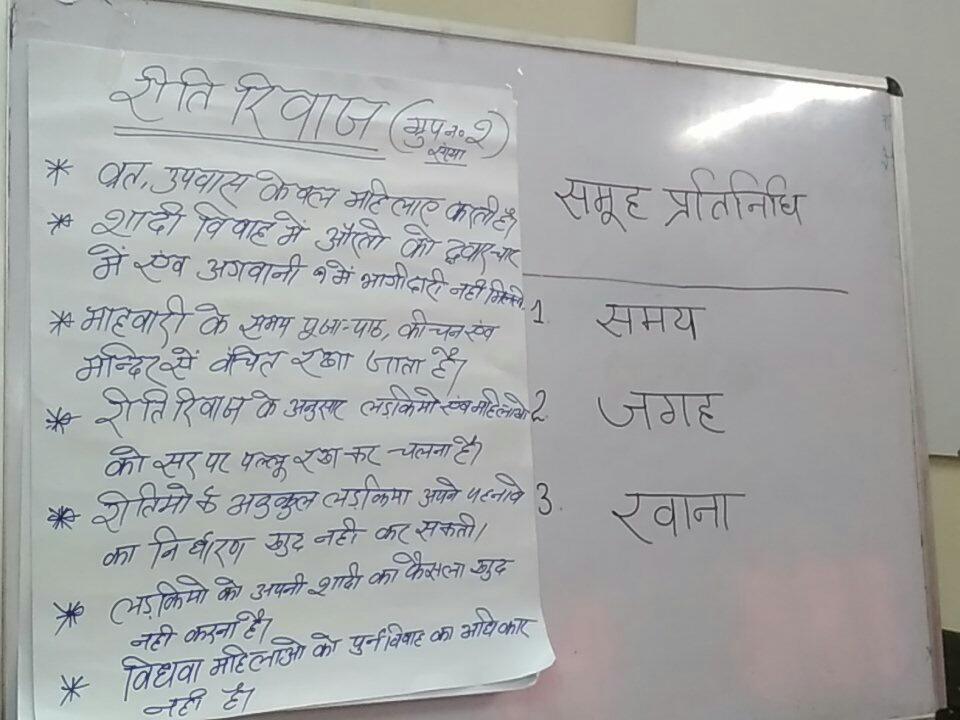 रीति रिवाज (ग्रुप न० २)
संख्या
* व्रत, उपवास केवल महिलाए करती है।
* शादी विवाह में औरतो को द्वारचार
में एंव अगवानी में भागीदारी नही मिलती
* माहवारी के समय पूजा-पाठ, कीचन एंव
मन्दिर से वंचित रखा जाता है।
* रीति रिवाज के अनुसार लड़कियो एंव महिलाओ
को सर पर पल्लू रख कर चलना है।
* रीतियो के अनुकुल लड़किया अपने पहनावे
का निर्धारण खुद नही कर सकती।
* लड़कियो को अपनी शादी का फैसला खुद
नही करना है।
* विधवा महिलाओ को पुर्नविवाह का अधिकार
नही है।
समूह प्रतिनिधि
1. समय
2. जगह
3. खाना